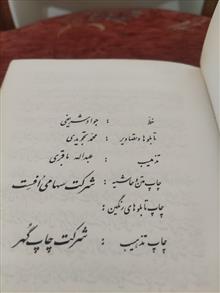 خط : جواد شریفی
تابلوها و تصاویر : محمد تجویدی
تذهیب : عبدالله باقری
چاپ متن و حاشیه : شرکت سهامی افست
چاپ تابلوهای رنگین :
چاپ تذهیب : شرکت چاپ گهر